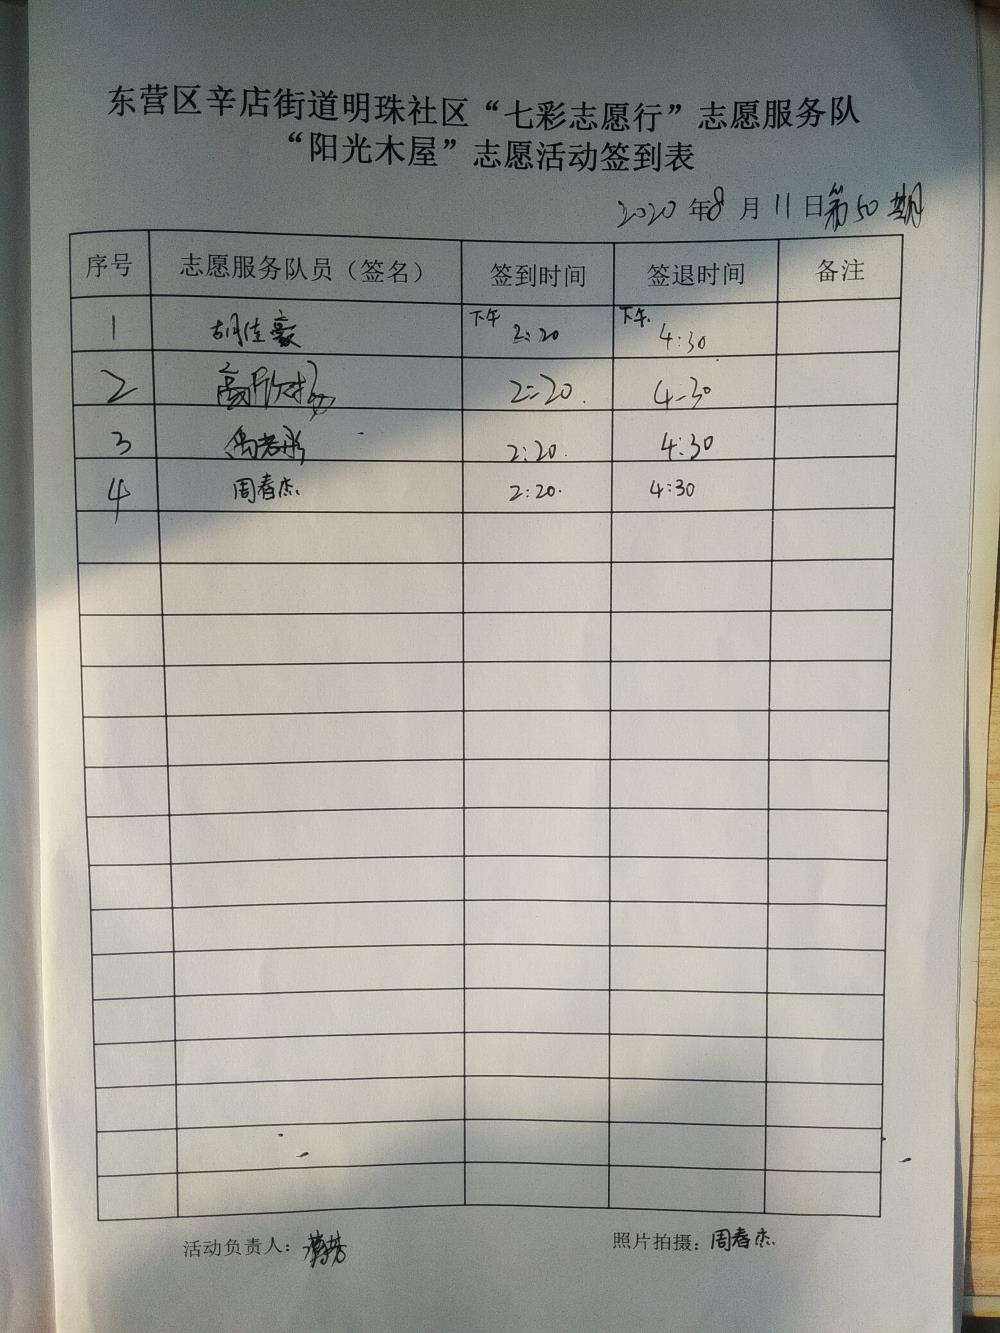 东营区辛店街道明珠社区“七彩志愿行”志愿服务队
“阳光木屋”志愿活动签到表
2020年8月11日第50期
序号 志愿服务队员（签名） 签到时间 签退时间 备注
1 胡佳豪 下午 2:20 下午. 4:30
2 高欣扬 2:20. 4:30
3 2:20. 4:30
4 周春杰. 2:20. 4:30
活动负责人： 照片拍摄：周春杰.